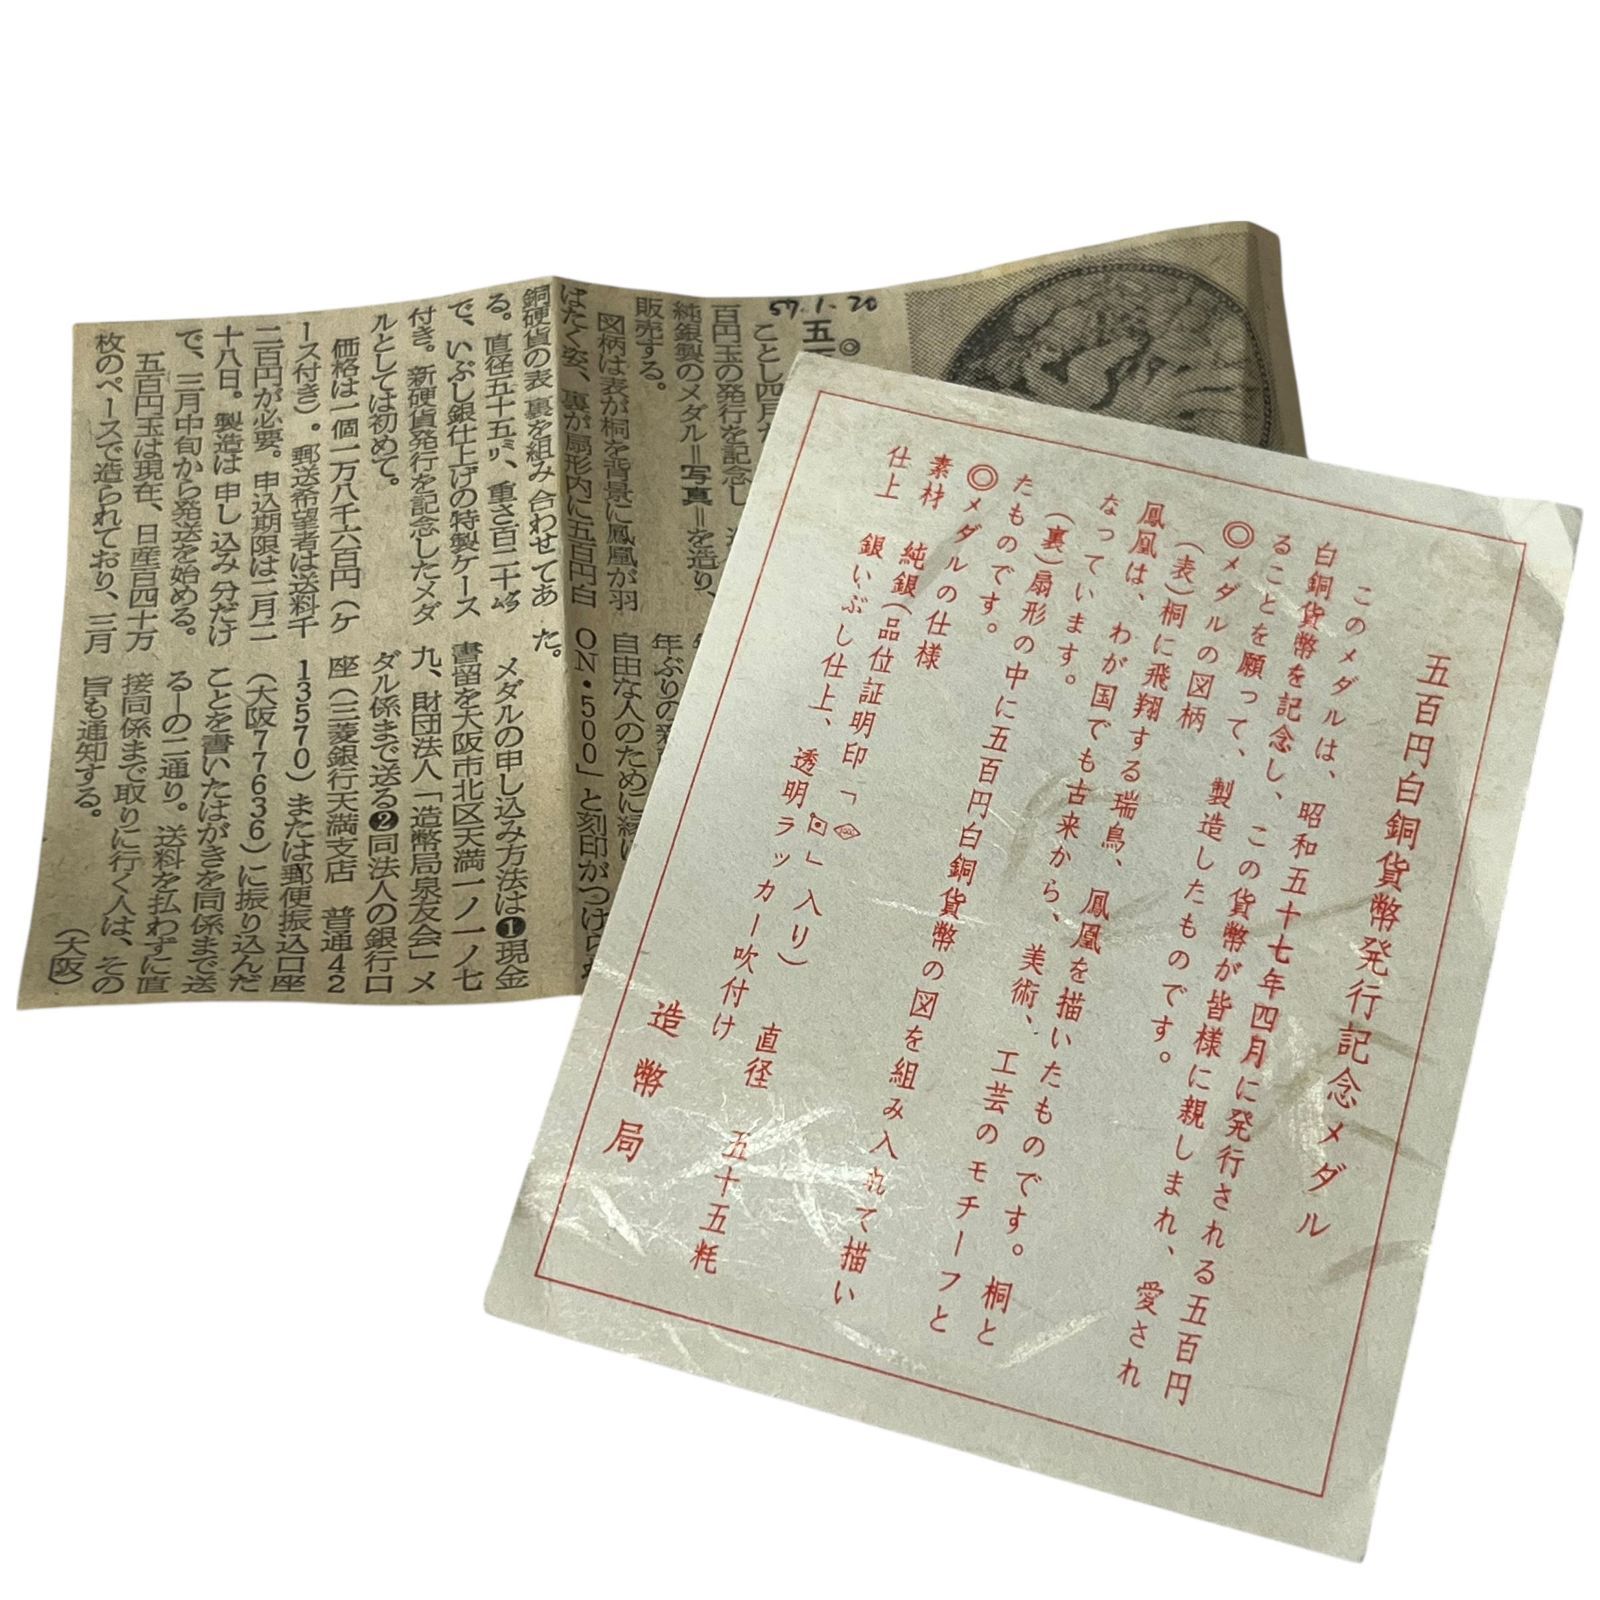 五百円白銅貨幣発行記念メダル
このメダルは、昭和五十七年四月に発行される五百円
白銅貨幣を記念し、この貨幣が皆様に親しまれ、愛され
ることを願って、製造したものです。
◎メダルの図柄
(表)桐に飛翔する瑞鳥、鳳凰を描いたものです。桐と
鳳凰は、わが国でも古来から、美術、工芸のモチーフと
なっています。
(裏)扇形の中に五百円白銅貨幣の図を組み入れて描い
たものです。
◎メダルの仕様
素材 純銀(品位証明印「 」入り) 直径 五十五粍
仕上 銀いぶし仕上、透明ラッカー吹付け
造幣局
57.1.20
◎
五
ことし四月
百円玉の発行を記念し
純銀製のメダル=写真=を造り、
販売する。
図柄は表が桐を背景に鳳凰が羽
ばたく姿、裏が扇形内に五百円白
銅硬貨の表裏を組み合わせてあ
る。直径五十五㍉、重さ百二十㌘
で、いぶし銀仕上げの特製ケース
付き。新硬貨発行を記念したメダ
ルとしては初めて。
価格は一個一万八千六百円(ケ
ース付き)。郵送希望者は送料千
二百円が必要。申込期限は二月二
十八日。製造は申し込み分だけ
で、三月中旬から発送を始める。
五百円玉は現在、日産百四十万
枚のペースで造られており、三月
年ぶりの
自由な人のために
ON・500」と刻印がつけら
た。
メダルの申し込み方法は❶現金
書留を大阪市北区天満一ノ一ノ七
九、財団法人「造幣局泉友会」メ
ダル係まで送る❷同法人の銀行口
座(三菱銀行天満支店 普通42
13570)または郵便振込口座
(大阪77636)に振り込んだ
ことを書いたはがきを同係まで送
る―の二通り。送料を払わずに直
接同係まで取りに行く人は、その
旨も通知する。
(大阪)